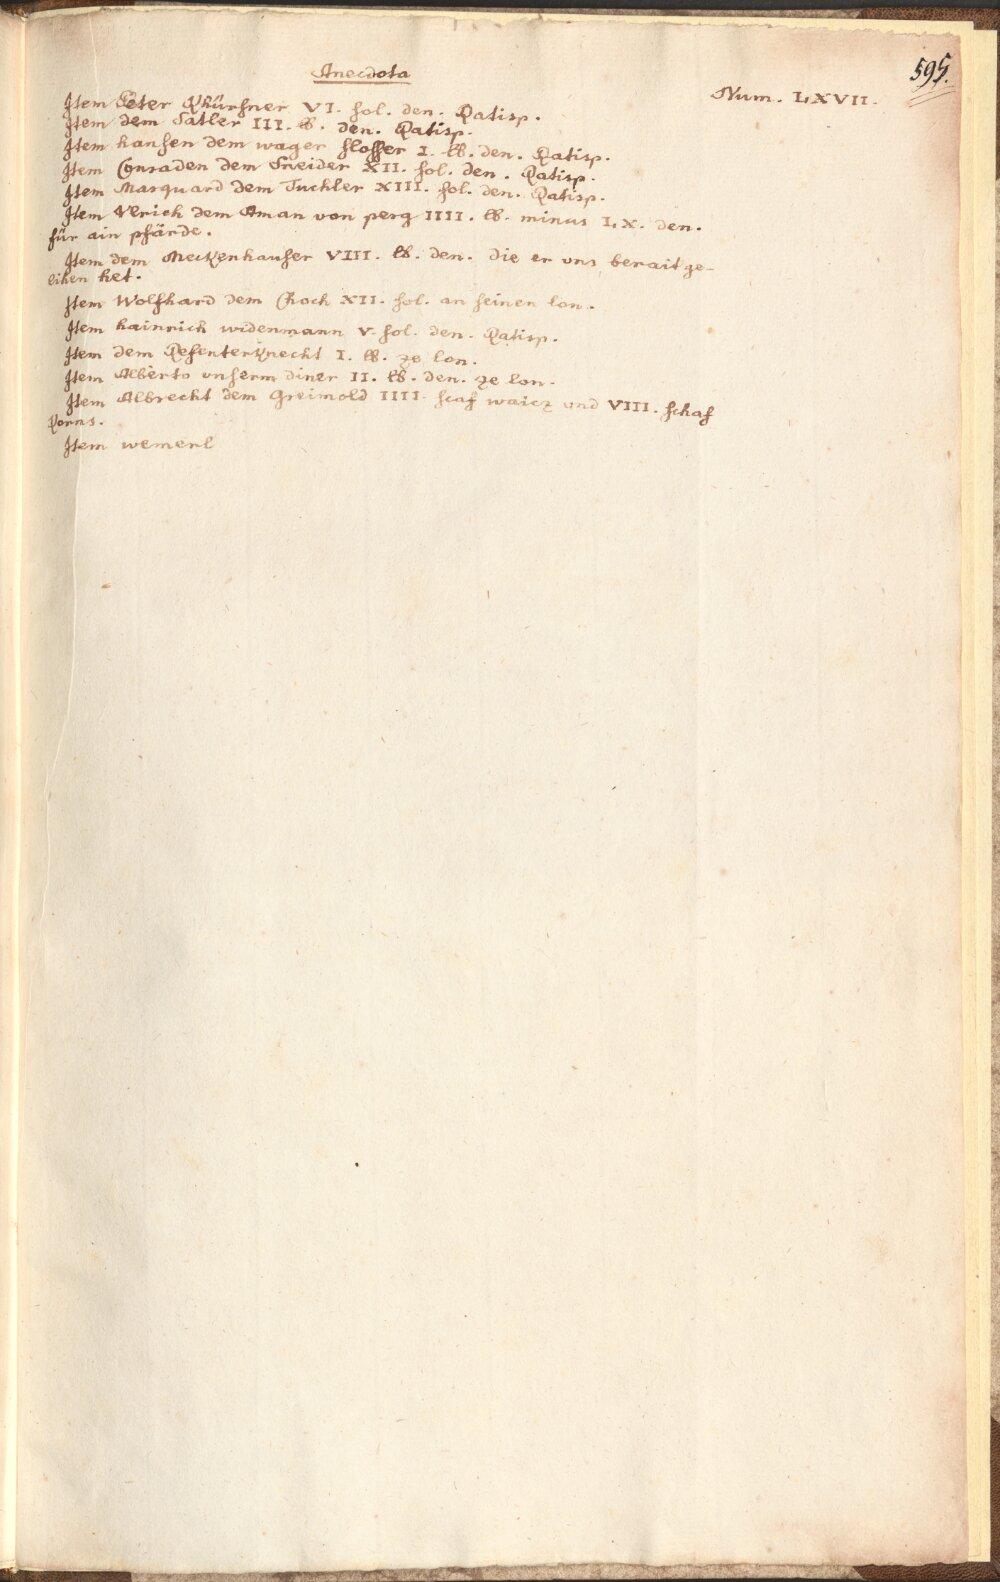 595.
Anecdota
Num. LXVII.
Item Peter Khürsner VI. sol. den. Ratisp.
Item dem Satler III. lb. den. Ratisp.
Item hansen dem wager slosser I. lb. den. Ratisp.
Item Conraden dem Sneider XII. sol. den. Ratisp.
Item Marquard dem Tuchler XIII. sol. den. Ratisp.
Item Vlrich dem Aman von perg IIII. lb. minus LX. den.
für ain pfärde.
Item dem Meckenhauser VIII. lb. den. die er vns berait ge-
lihen het.
Item Wolfhard dem Choch XII. sol. an seinen lon.
Item hainrich widenmann V. sol. den. Ratisp.
Item dem Refenterknecht I. lb. ze lon.
Item Alberto vnserm diner II. lb. den. ze lon.
Item Albrecht dem Greimold IIII. scaf waicz vnd VIII. schaf
korns.
Item wernerl